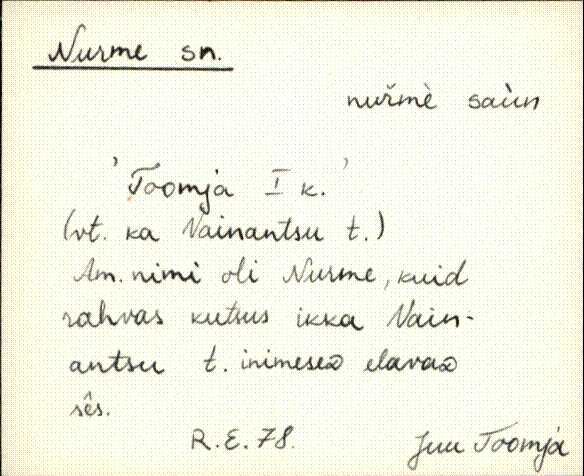 Nurme sn.
nuřmè saùn
'Toomja I k.'
(vt. ka Nainantsu t.)
Am. nimi oli Nurme, kuid
rahvas kutsus ikka Nain-
antsu t. inimeseꝺ elavaꝺ
sês.
R.E. 78. Juu Toomja